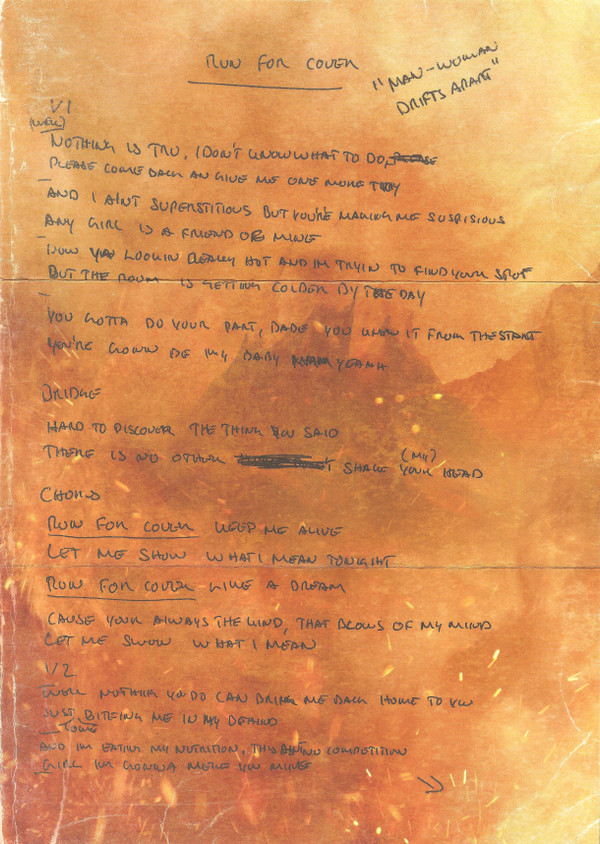 RUN FOR COVER
"MAN-WOMAN
DRIFTS APART"
V1
(WELL)
NOTHING IS TRU, I DON'T KNOW WHAT TO DO,
PLEASE COME BACK AN GIVE ME ONE MORE TRY
AND I AIN'T SUPERSTITIOUS BUT YOU'RE MAKING ME SUSPISIOUS
ANY GIRL IS A FRIEND OF MINE
NOW YOU LOOKIN REALLY HOT AND IM TRYIN TO FIND YOUR SPOT
BUT THE ROOM IS GETTING COLDER BY THE DAY
YOU GOTTA DO YOUR PART, BABE YOU KNEW IT FROM THE START
YOU'RE GONN BE MY BABY YEAHH
BRIDGE
HARD TO DISCOVER THE THING YOU SAID
THERE IS NO OTHER SHAKE YOUR HEAD
(MY)
CHORUS
RUN FOR COVER KEEP ME ALIVE
LET ME SHOW WHAT I MEAN TONIGHT
RUN FOR COVER LIKE A DREAM
CAUSE YOUR ALWAYS THE WIND, THAT BLOWS OF MY MIND
LET ME SHOW WHAT I MEAN
V2
WELL NOTHING YOU DO CAN BRING ME BACK HOME TO YOU
JUST BITEING ME IN MY BEHIND
AND IM EATING MY NUTRITION, THIS AIN'T NO COMPETITION
GIRL IM GONNA MAKE YOU MINE